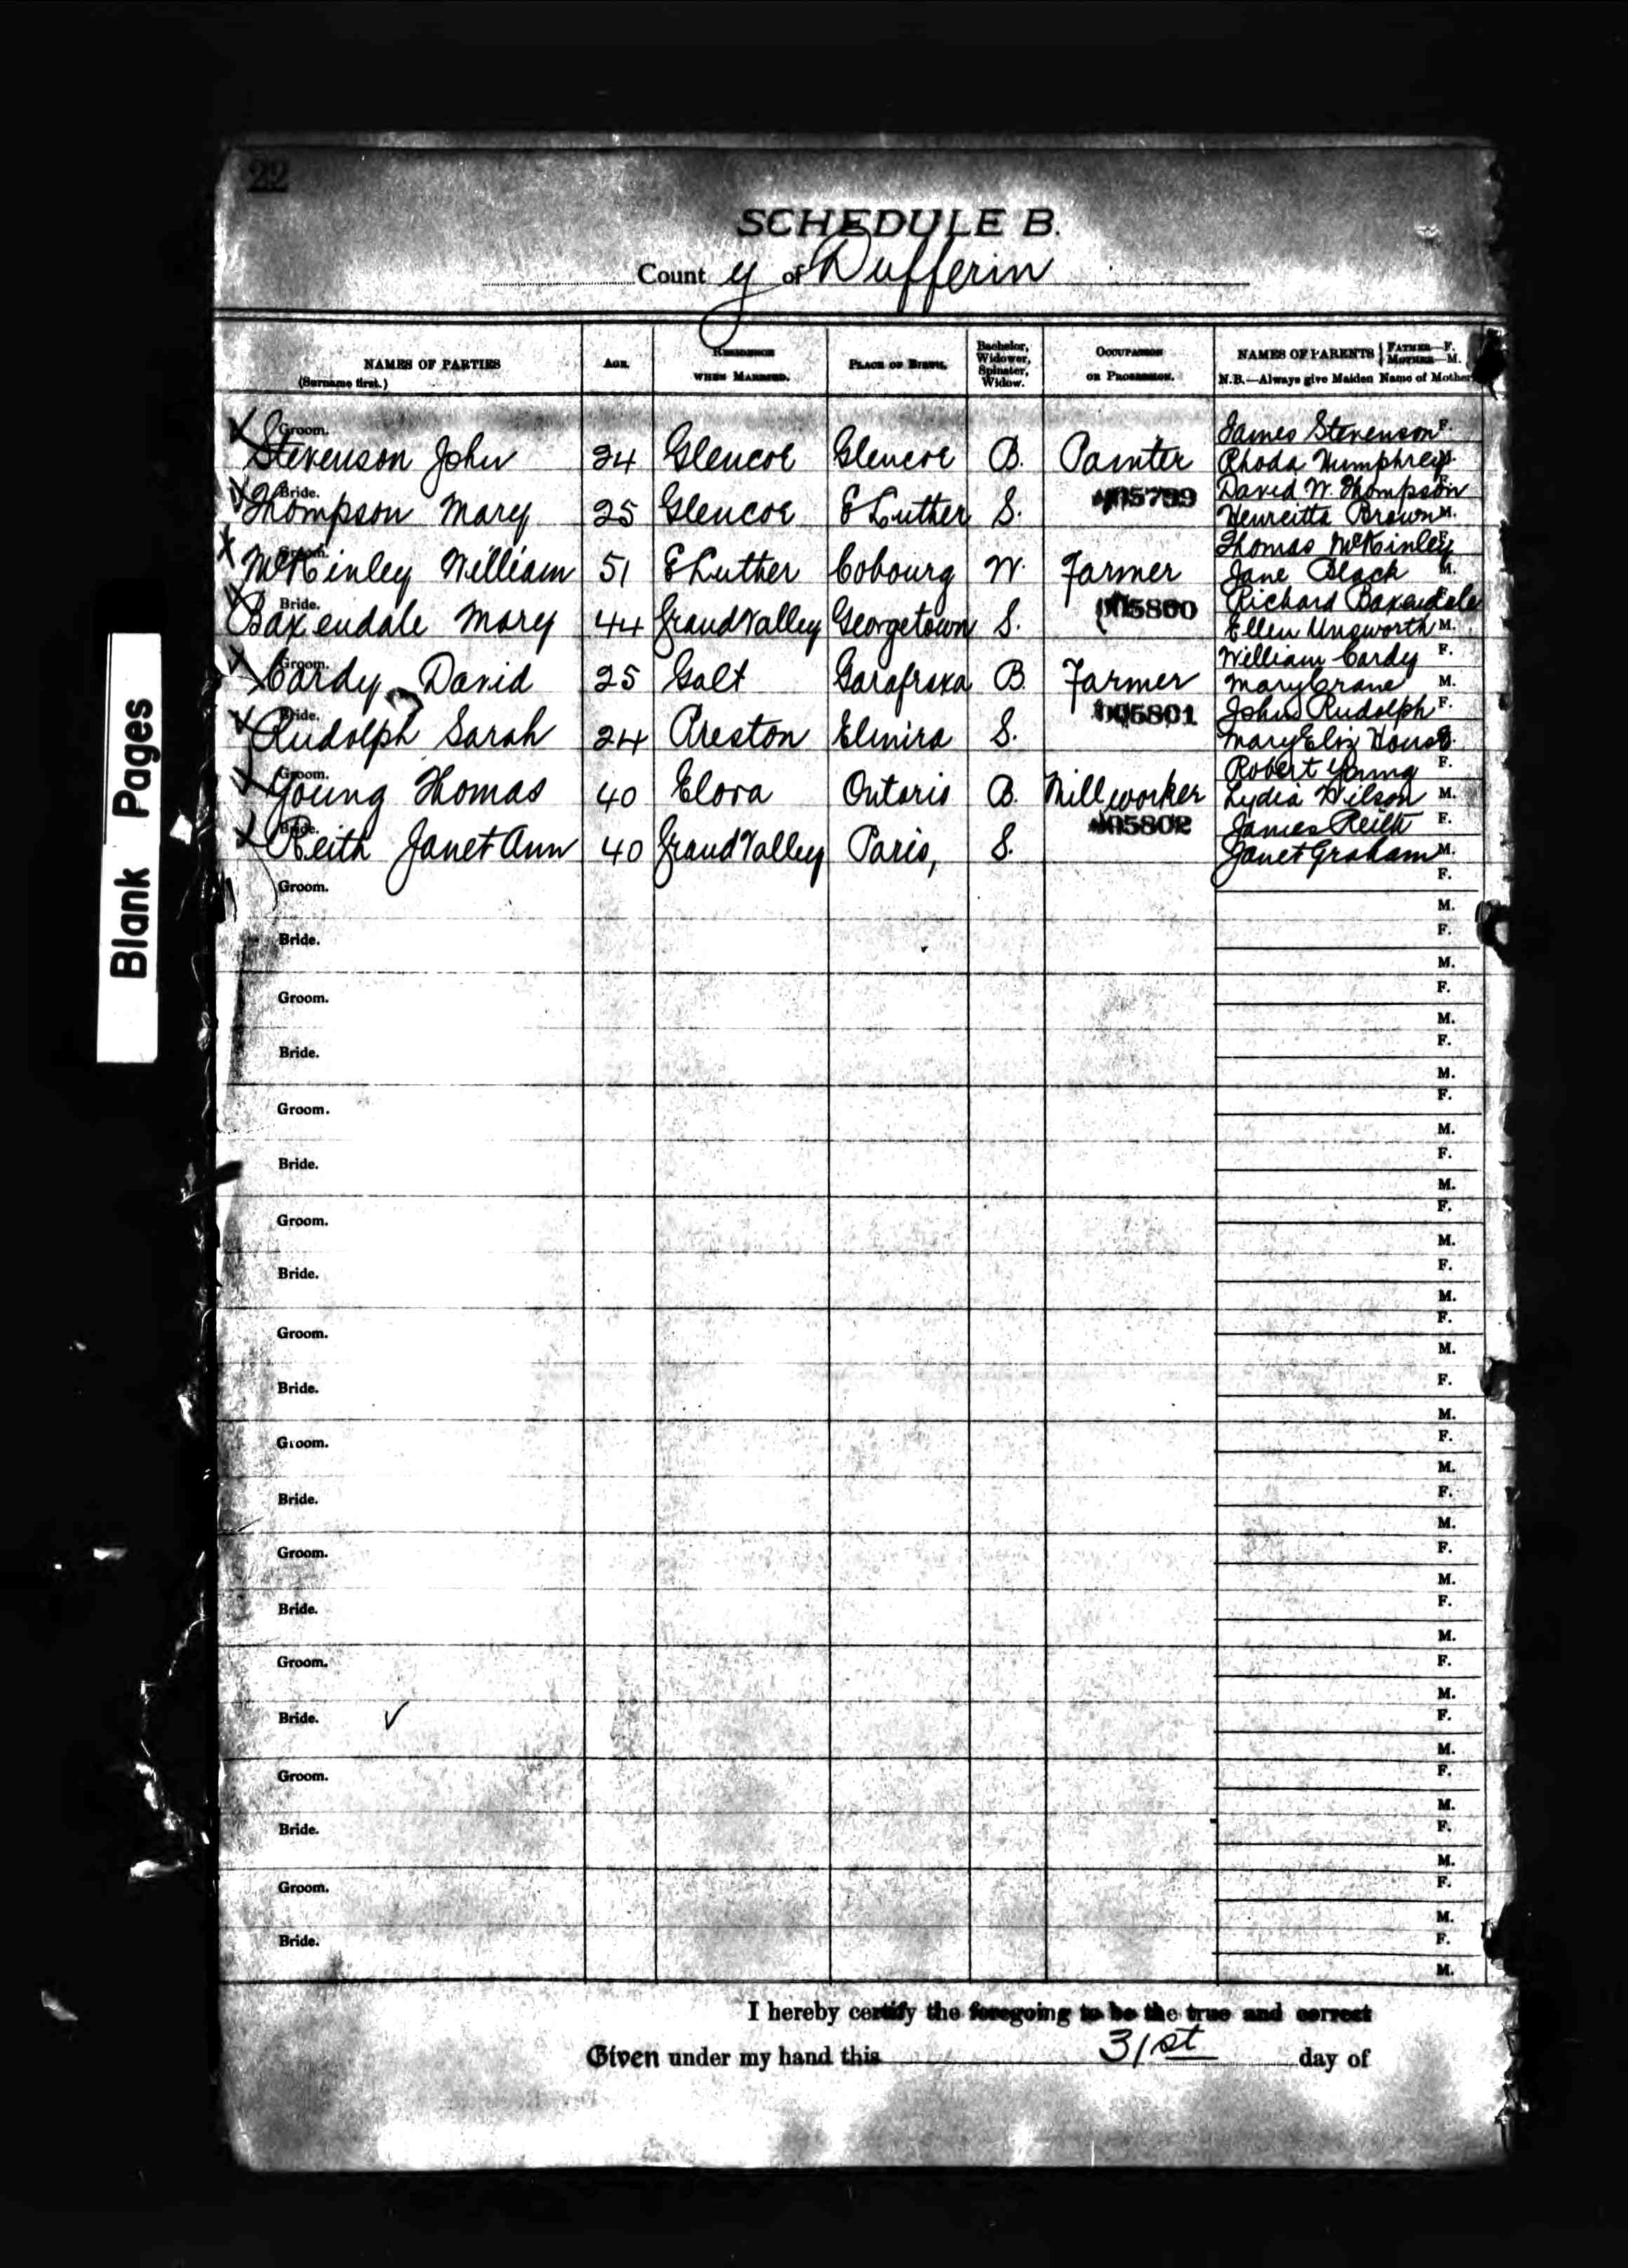 22
SCHEDULE B.
County of Dufferin
NAMES OF PARTIES
(Surname first.)
AGE.
RESIDENCE
WHEN MARRIED.
PLACE OF BIRTH.
Bachelor,
Widower,
Spinster,
Widow.
OCCUPATION
OR PROFESSION.
NAMES OF PARENTS FATHER—F.
MOTHER—M.
N.B.—Always give Maiden Name of Mother
Groom. James Stevenson F.
Stevenson John 24 Glencoe Glencoe B. Painter Rhoda Humphreys
Bride. 005799 David W. Thompson
Thompson Mary 25 Glencoe E Luther S. Henreitta Brown M.
Groom. Thomas McKinley
McKinley William 51 E Luther Cobourg W. Farmer Jane Black M.
Bride. 005800 Richard Baxendale
Baxendale Mary 44 Grand Valley Georgetown S. Ellen Unsworth M.
Groom. William Cardy F.
Cardy David 25 Galt Garafraxa B. Farmer Mary Crane M.
Bride. 005801 John Rudolph F.
Rudolph Sarah 24 Preston Elmira S. Mary Eliz House
Groom. Robert Young F.
Young Thomas 40 Elora Ontario B. Mill worker Lydia Wilson M.
Bride. 005802 James Reith F.
Reith Janet Ann 40 Grand Valley Paris, S. Janet Graham M.
Groom. F.
M.
Bride. F.
M.
Groom. F.
M.
Bride. F.
M.
Groom. F.
M.
Bride. F.
M.
Groom. F.
M.
Bride. F.
M.
Groom. F.
M.
Bride. F.
M.
Groom. F.
M.
Bride. F.
M.
Groom. F.
M.
Bride. F.
M.
Groom. F.
M.
Bride. F.
M.
Groom. F.
M.
Bride. F.
M.
Groom. F.
M.
Bride. F.
M.
I hereby certify the foregoing to be the true and correct
Given under my hand this 31st day of
Blank Pages